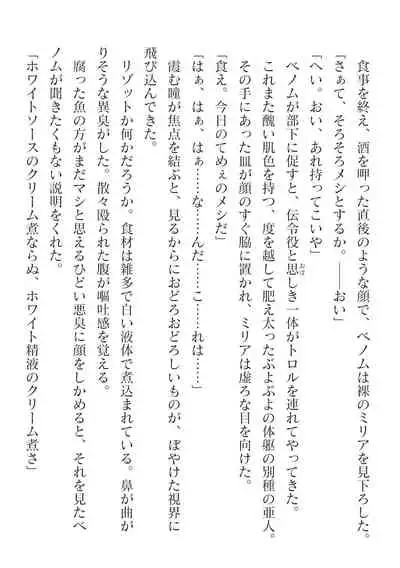 食事を終え、酒を呷った直後のような顔で、ベノムは裸のミリアを見下ろした。
「さぁて、そろそろメシとするか。――おい」
「へい。おい、あれ持ってこいや」
ベノムが部下に促すと、伝令役と思おぼしき一体がトロルを連れてやってきた。
これまた醜い肌色を持つ、度を越して肥え太ったぶよぶよの体躯の別種の亜人。
その手にあった皿が顔のすぐ脇に置かれ、ミリアは虚ろな目を向けた。
「食え。今日のてめぇのメシだ」
「はぁ、はぁ、はぁ……な……んだ……こ……れは……」
霞む瞳が焦点を結ぶと、見るからにおどろおどろしいものが、ぼやけた視界に
飛び込んできた。
リゾットか何かだろうか。食材は雑多で白い液体で煮込まれている。鼻が曲が
りそうな異臭がした。散々殴られた腹が嘔吐感を覚える。
腐った魚の方がまだマシと思えるひどい悪臭に顔をしかめると、それを見たベ
ノムが聞きたくもない説明をくれた。
「ホワイトソースのクリーム煮ならぬ、ホワイト精液のクリーム煮さ」